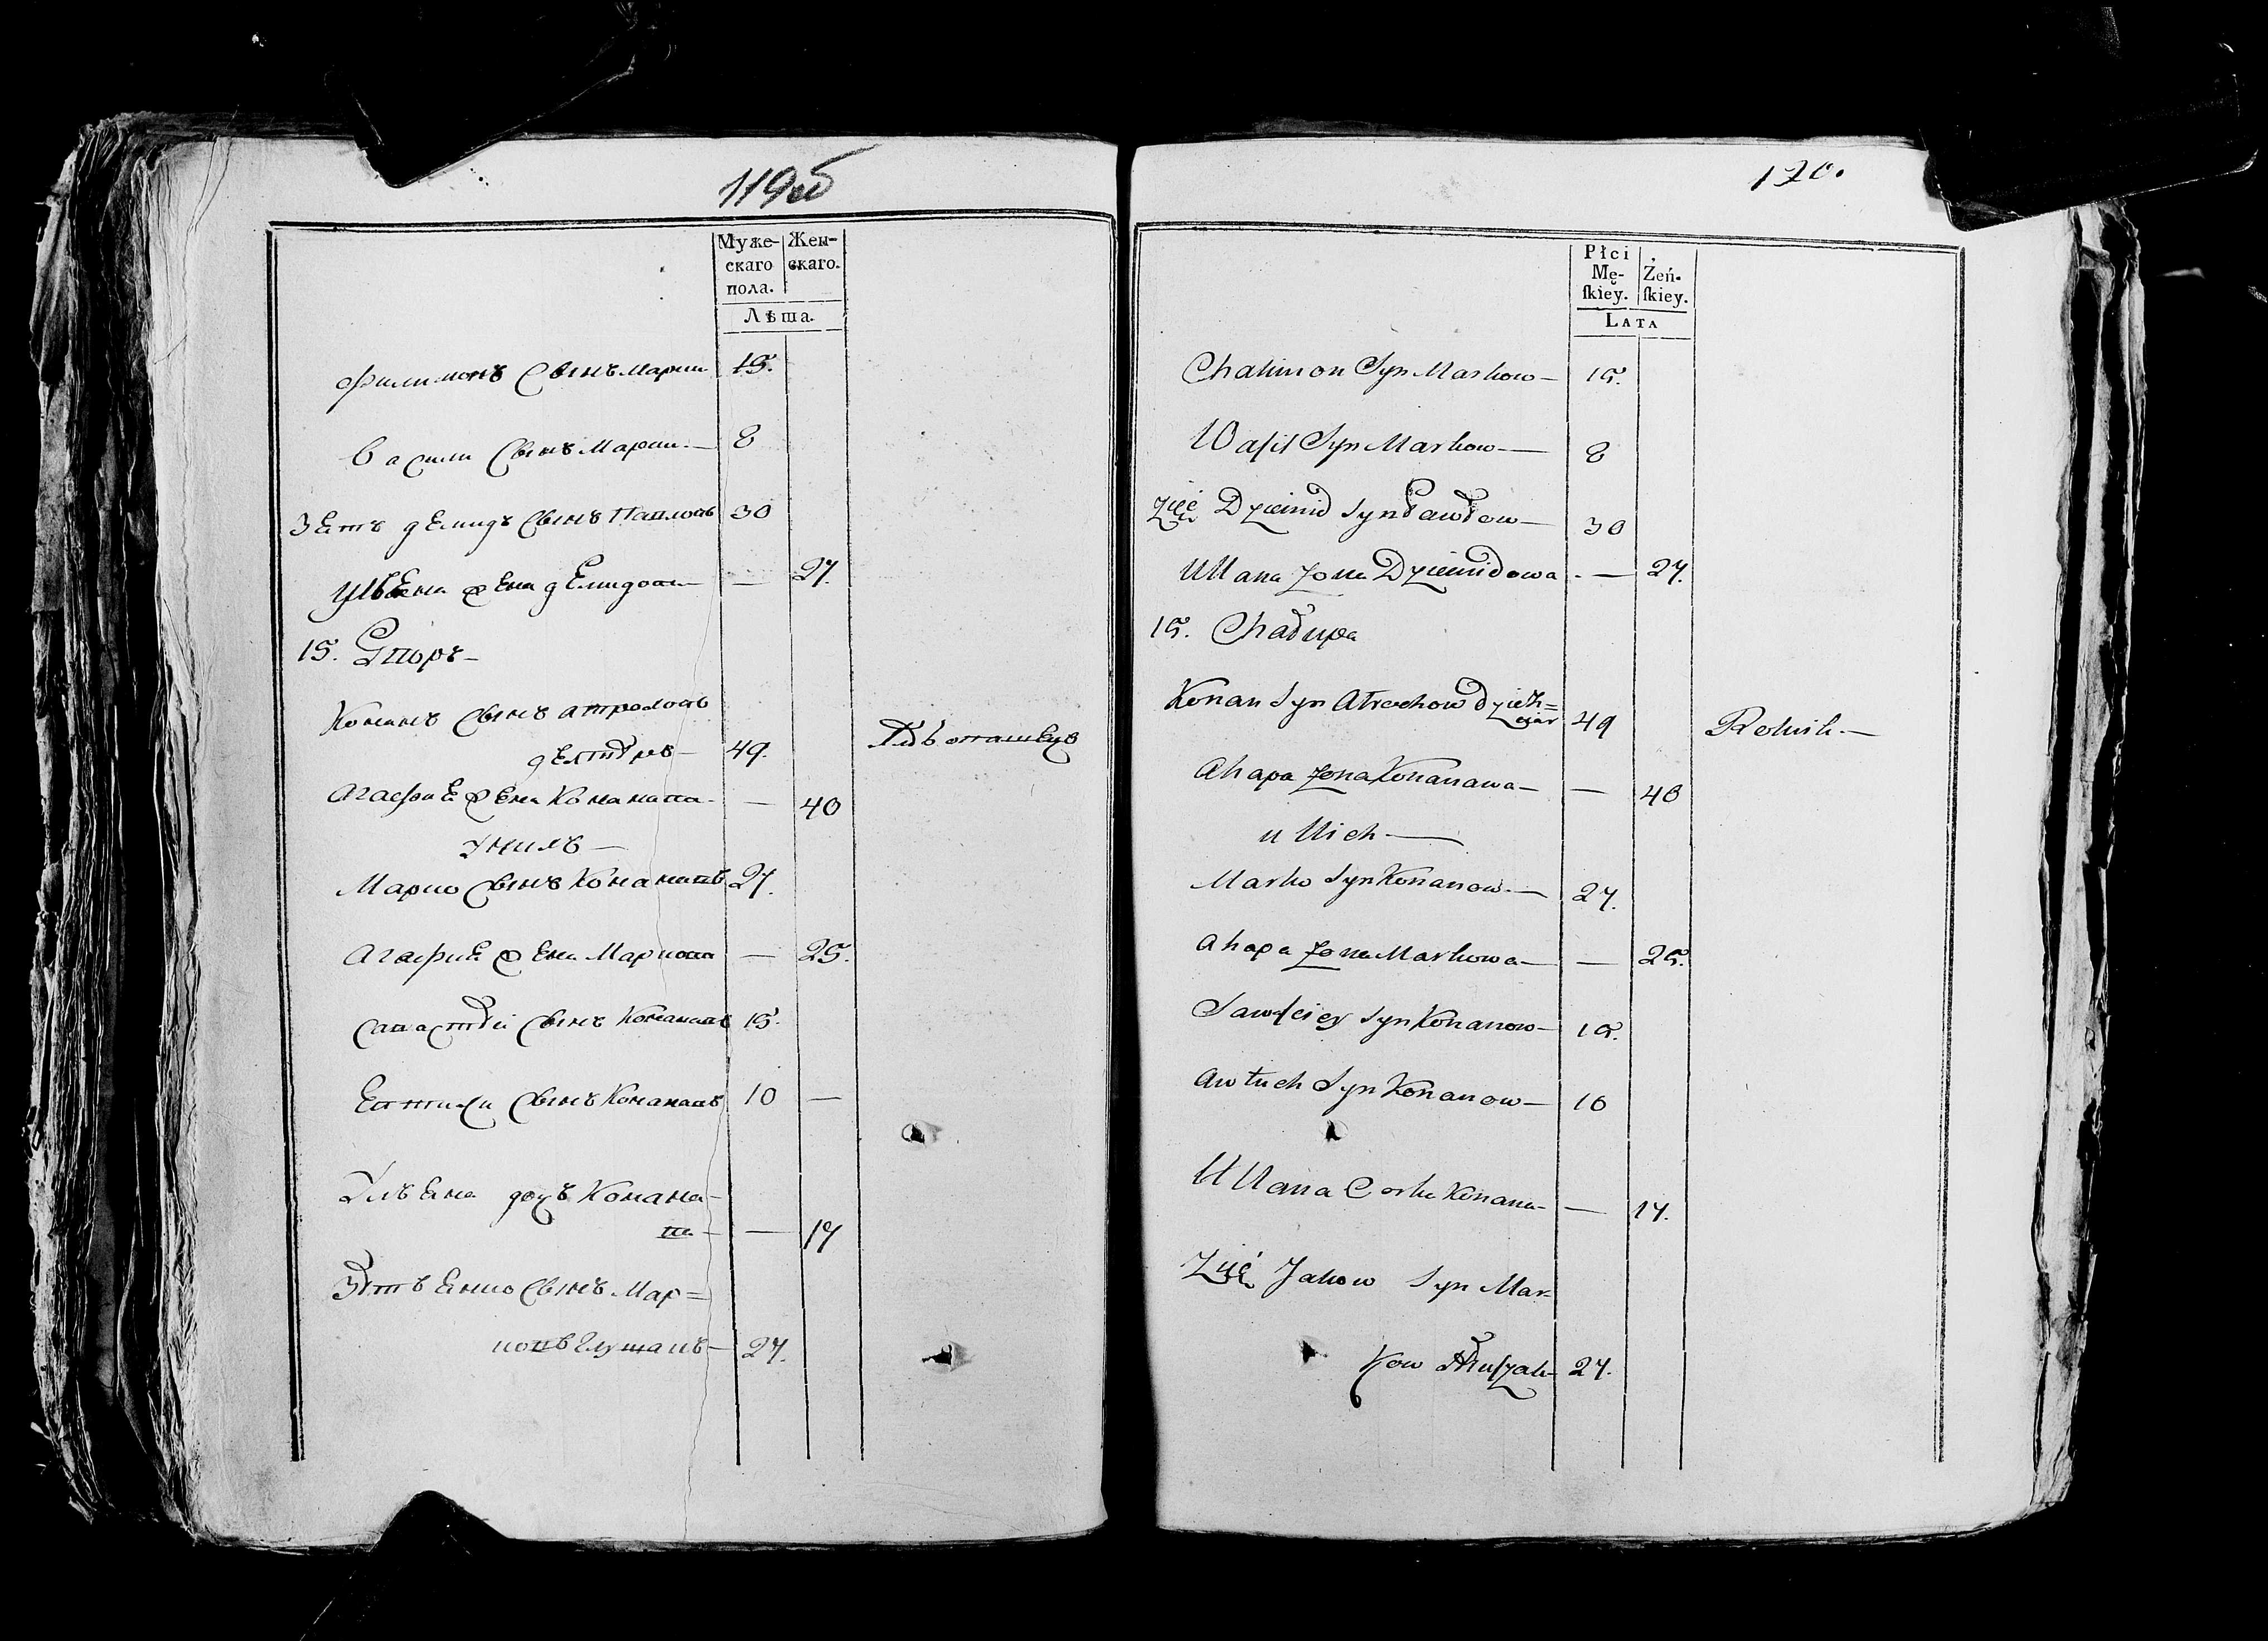 119об
Муже-
скаго
пола.
Жен-
скаго.
Лѣта.
Филимонъ Сынъ Марки 15.
Васили Сынъ Марки — 8
Зять Демидъ Сынъ Павловъ 30
Ульена жена Демидова — — 27.
15. Дворъ —
Конанъ Сынъ
— 49.
Агафие жена Кананова — — 40
У нихъ —
Марко Сынъ Конановъ 27.
Агафие жена Маркова — 25.
Савастѣй Сынъ Конановъ 15.
Евтихи Сынъ Конановъ 10 —
Ульена дочъ Конано-
ва — — 17
Зять Сынъ Мар=
ковъ Глушаковъ — 27.
120.
Płci
Mę-
skiey.
Żeń-
skiey.
LATA
Chalimon Syn Markow — 15.
Wasil Syn Markow — 8
Zięć Dziemid Syn Pawłow — 30
Ullana Zona Dziemidowa — 27.
15. Chałupa
Konan Syn Atrochow Dzieh=
ciar 49 Rolnik —
Ahapa Zona Konanawa — — 40
u Nich —
Marko Syn Konanow — 27.
Ahapa Zona Markowa — — 25.
Sawściey Syn Konanow — 15.
Awtuch Syn Konanow — 10
Ullana Corka Konana — — 17.
Zięć Jakow Syn Mar-
kow Hłuszak — 27.